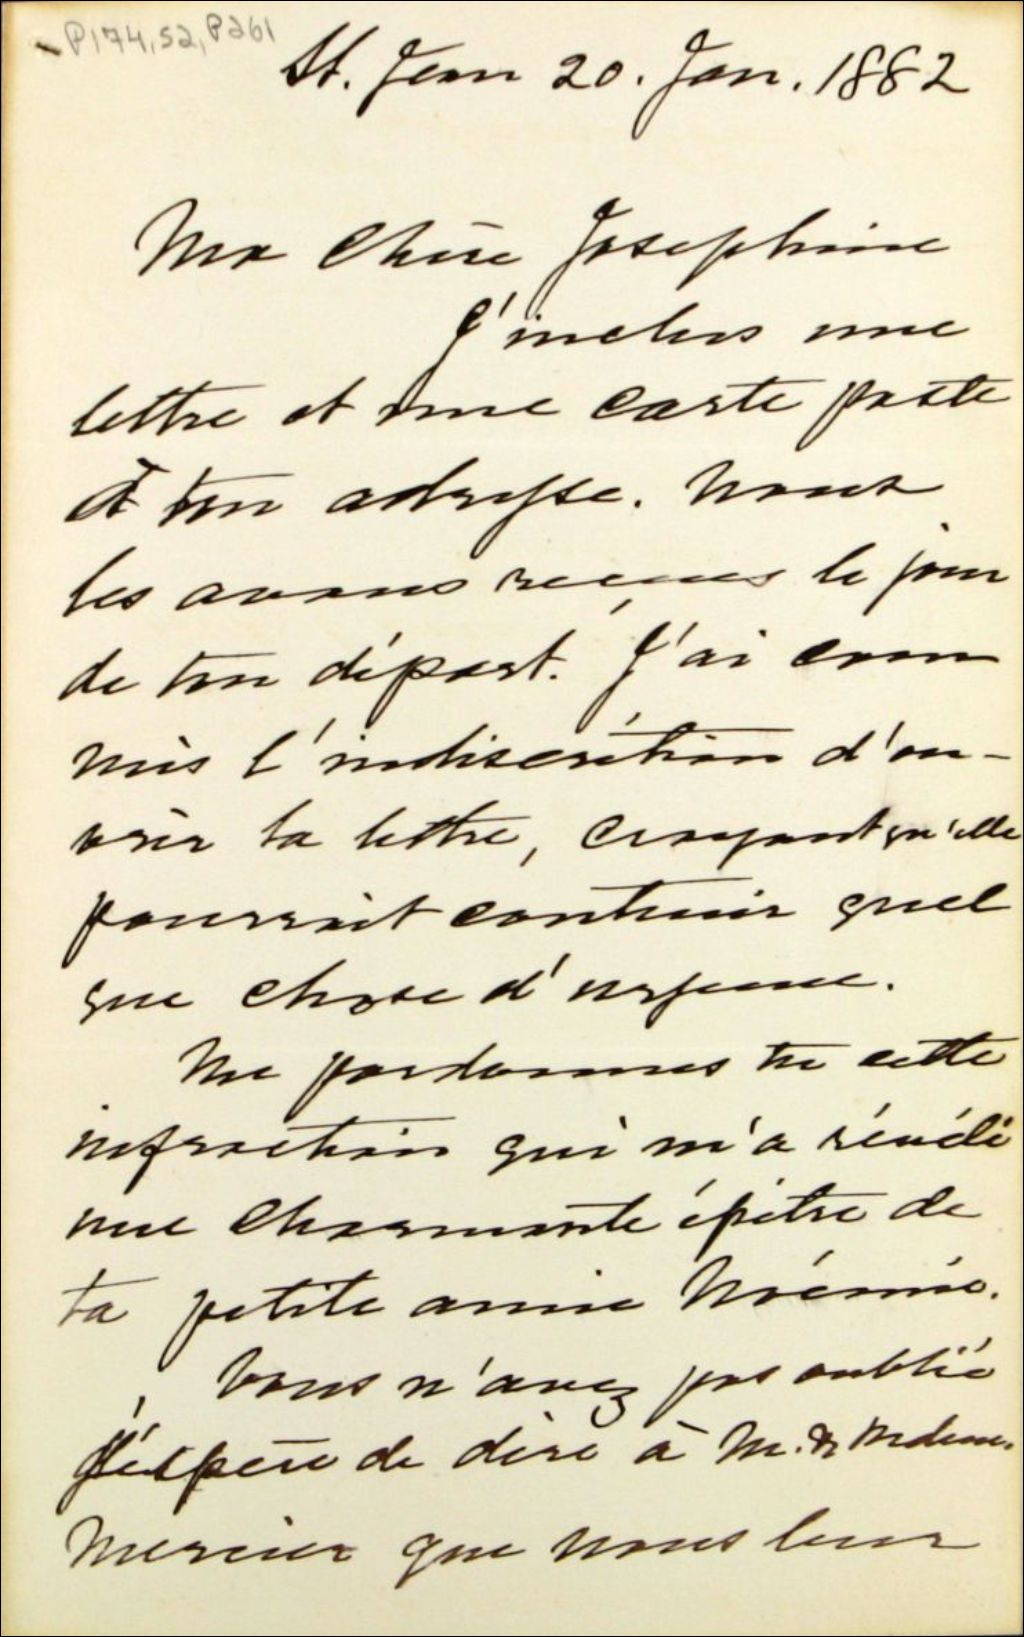 P174, S2, P261
St. Jean 20. Jan. 1882
Ma Chère Josephine
J'inclus une
lettre et une carte poste
à ton adresse. Nous
les avons reçues le jour
de ton départ. J'ai com
mis l'indiscrétion d'ou-
vrir ta lettre, croyant qu'elle
pourrait contenir quel
que chose d'urgence.
Me pardonnes tu cette
infraction qui m'a révélé
une charmante épitre de
ta petite amie Noémie.
Vous n'avez pas oublié
J'éspère de dire à M. & Mdme.
Mercier que nous leur